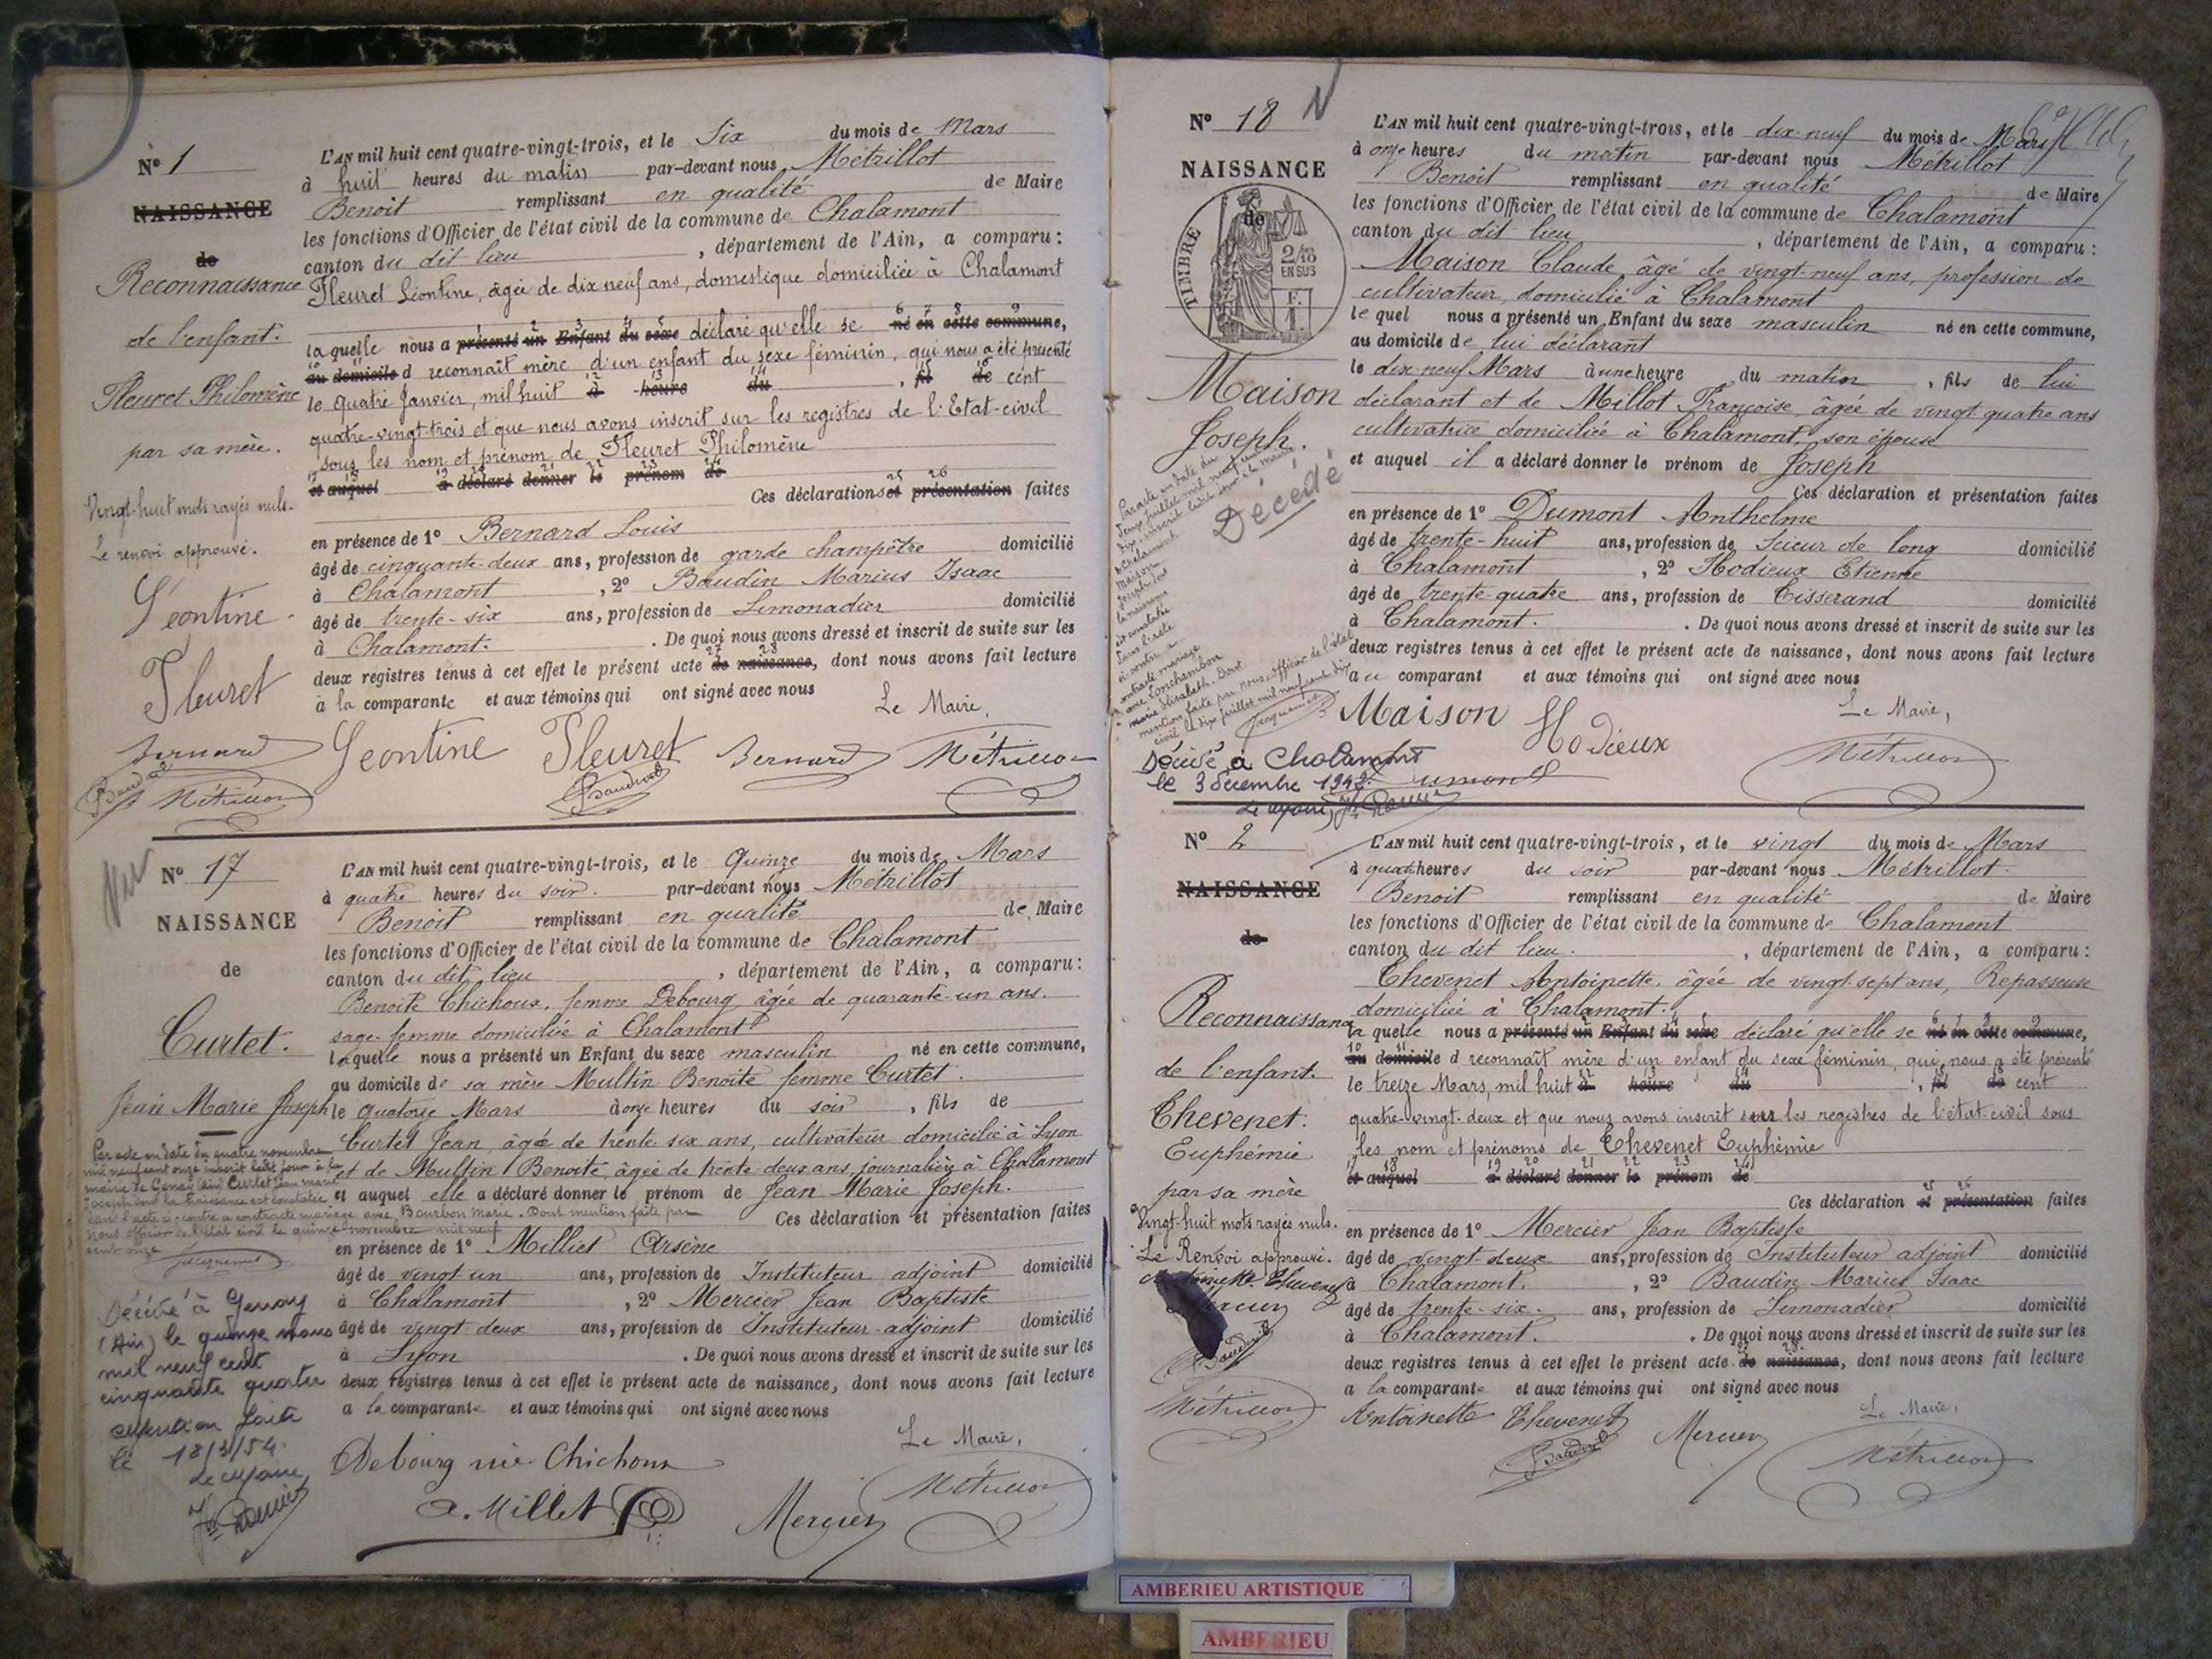 N° 1
NAISSANCE
de
Reconnaissance
de l'enfant.
Fleuret Philomène
par sa mère.
Vingt-huit mots rayés nuls.
Le renvoi approuvé.
Léontine
Fleuret
Bernard
Baudin
Métrillot
L'AN mil huit cent quatre-vingt-trois, et le Six du mois de Mars
à huit heures du matin par-devant nous Métrillot
Benoit remplissant en qualité de Maire
les fonctions d'Officier de l'état civil de la commune de Chalamont
canton du dit lieu , département de l'Ain, a comparu :
Fleuret Léontine, âgée de dix neuf ans, domestique domiciliée à Chalamont
laquelle nous a présenté un Enfant du sexe déclaré qu'elle se né en cette commune,
au domicile d reconnaît mère d'un enfant du sexe féminin, qui nous a été présenté
le quatre Janvier, mil huit à heure du , fil de cent
quatre-vingt-trois et que nous avons inscrit sur les registres de l'Etat-civil
sous les nom et prénom de Fleuret Philomène
et auquel a déclaré donner le prénom de
Ces déclarations et présentation faites
en présence de 1° Bernard Louis
âgé de cinquante-deux ans, profession de garde champêtre domicilié
à Chalamont , 2° Baudin Marius Isaac
âgé de trente-six ans, profession de Limonadier domicilié
à Chalamont. . De quoi nous avons dressé et inscrit de suite sur les
deux registres tenus à cet effet le présent acte de naissance, dont nous avons fait lecture
à la comparante et aux témoins qui ont signé avec nous
Le Maire,
Léontine Fleuret Bernard Métrillot
Baudin
N° 17
NAISSANCE
de
Curtet.
Jean Marie Joseph
Par acte en date du quatre novembre
mil neuf cent onze inscrit ledit jour à la
mairie de Genay (Ain) Curtet Jean marie
Joseph dont la naissance est constatée
dans l'acte ci-contre a contracté mariage avec Bourbon Marie. Dont mention faite par
nous officier de l'état civil le quinze novembre mil neuf
cent onze
Jacquemet
Décédé à Genay
(Ain) le quinze mars
mil neuf cent
cinquante quatre
mention faite
le 18/3/54.
Le Maire,
L'AN mil huit cent quatre-vingt-trois, et le Quinze du mois de Mars
à quatre heures du soir. par-devant nous Métrillot
Benoit remplissant en qualité de Maire
les fonctions d'Officier de l'état civil de la commune de Chalamont
canton du dit lieu , département de l'Ain, a comparu :
Benoite Chichoux, femme Debourg âgée de quarante-un ans.
sage-femme domiciliée à Chalamont
laquelle nous a présenté un Enfant du sexe masculin né en cette commune,
au domicile de sa mère Multin Benoite femme Curtet.
le quatorze Mars à onze heures du soir , fils de
Curtet Jean, âgé de trente-six ans, cultivateur domicilié à Lyon
et de Multin Benoite, âgée de trente-deux ans, journalière à Chalamont
et auquel elle a déclaré donner le prénom de Jean Marie Joseph.
Ces déclaration et présentation faites
en présence de 1° Milliet Arsène
âgé de vingt un ans, profession de Instituteur adjoint domicilié
à Chalamont , 2° Mercier Jean Baptiste
âgé de vingt-deux ans, profession de Instituteur-adjoint domicilié
à Lyon . De quoi nous avons dressé et inscrit de suite sur les
deux registres tenus à cet effet le présent acte de naissance, dont nous avons fait lecture
a la comparante et aux témoins qui ont signé avec nous
Le Maire,
Debourg née Chichoux
Métrillot
A. Milliet Mercier
N° 18 N
NAISSANCE
de
TIMBRE
2/10
EN SUS
Maison
Joseph.
Décédé
Par acte en date du
deux juillet mil neuf cent
dix, inscrit ledit jour à la mairie
Chalamont
Maison
Joseph dont
la naissance
est constatée
dans l'acte
ci-contre a
contracté mariage
avec Lonchambon
marie Elisabeth. Dont
mention faite par nous, officier de l'état
civil le dix juillet mil neuf cent dix
Jacquemet
Décédé à Chalamont
le 3 décembre 1942.
Le Maire,
L'AN mil huit cent quatre-vingt-trois, et le dix-neuf du mois de Mars
à onze heures du matin par-devant nous Métrillot
Benoit remplissant en qualité de Maire
les fonctions d'Officier de l'état civil de la commune de Chalamont
canton du dit lieu , département de l'Ain, a comparu :
Maison Claude, âgé de vingt-neuf ans, profession de
cultivateur, domicilié à Chalamont
lequel nous a présenté un Enfant du sexe masculin né en cette commune,
au domicile de lui déclarant
le dix neuf Mars à une heure du matin , fils de lui
déclarant et de Millot Françoise, âgée de vingt quatre ans
cultivatrice domiciliée à Chalamont, son épouse
et auquel il a déclaré donner le prénom de Joseph
Ces déclaration et présentation faites
en présence de 1° Dumont Anthelme
âgé de trente-huit ans, profession de Scieur de long domicilié
à Chalamont , 2° Hodieux Etienne
âgé de trente-quatre ans, profession de Tisserand domicilié
à Chalamont. . De quoi nous avons dressé et inscrit de suite sur les
deux registres tenus à cet effet le présent acte de naissance, dont nous avons fait lecture
au comparant et aux témoins qui ont signé avec nous
Le Maire,
Maison Hodieux Métrillot
Dumont
N° 2
NAISSANCE
de
Reconnaissance
de l'enfant.
Chevenet.
Euphémie
par sa mère
Vingt-huit mots rayés nuls.
Le Renvoi approuvé.
Antoinette Chevenet
Mercier
Baudin
Métrillot
L'AN mil huit cent quatre-vingt-trois, et le vingt du mois de Mars
à quatre heures du soir par-devant nous Métrillot.
Benoit remplissant en qualité de Maire
les fonctions d'Officier de l'état civil de la commune de Chalamont
canton du dit lieu. , département de l'Ain, a comparu :
Chevenet Antoinette. âgée de vingt-sept ans, Repasseuse
domiciliée à Chalamont.
laquelle nous a présenté un Enfant du sexe déclaré qu'elle se né en cette commune,
au domicile d reconnaît mère d'un enfant du sexe féminin, qui nous a été présenté
le treize Mars, mil huit à heure du , fil de cent
quatre-vingt-deux et que nous avons inscrit sur les registres de l'état-civil sous
les nom et prénoms de Chevenet Euphémie
et auquel a déclaré donner le prénom de
Ces déclaration et présentation faites
en présence de 1° Mercier Jean Baptiste
âgé de vingt-deux ans, profession de Instituteur adjoint domicilié
à Chalamont. , 2° Baudin Marius Isaac
âgé de trente-six. ans, profession de Limonadier domicilié
à Chalamont. . De quoi nous avons dressé et inscrit de suite sur les
deux registres tenus à cet effet le présent acte de naissance, dont nous avons fait lecture
a la comparante et aux témoins qui ont signé avec nous
Le Maire,
Antoinette Chevenet Mercier Métrillot
Baudin
AMBERIEU ARTISTIQUE
AMBERIEU